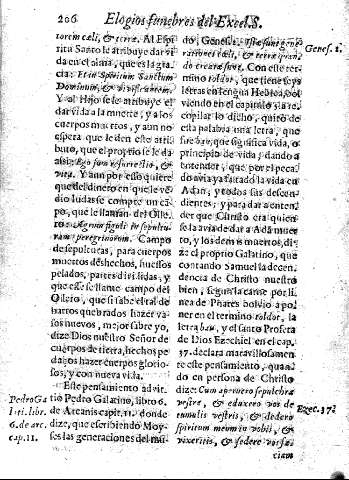 206 Elogios funebres del Excel. S.
torem cœli, & terræ. Al Espi
ritu Santo le atribuye dar vi
da en el alma, que es la gra
cia: Et in Spiritum Sanctum
Dominum, & vivificantem.
Y al Hijo se le atribuye el
dar vida a la muerte, y a los
cuerpos muertos, y aun no
espera que le den este atri
buto, que el proprio se le da
asis: Ego sum resurrectio, &
vita. Y aun por esso quiere
que del dinero en que le ve
dio Iudas se compte un cā
po, que le llaman del Olle
ro: Agrum figuli in sepultu
ram peregrinorum. Campo
de sepulturas, para cuerpos
muertos deshechos, huessos
pelados, partes divididas, y
que este se llame campo del
Ollero, que si sabe el tal de
barros quebrados hazer va
sos nuevos, mejor sabre yo,
dize Dios nuestro Señor de
cuerpos de tierra, hechos pe
daços hazer cuerpos glorio-
sos, y con nueva vida.
Este pensamiento advir.
tio Pedro Galatino, libro 6.
de Arcanis capit. 11. donde
dize, que escribiendo Moy-
ses las generaciones del mū
Pedro Ga
lati. lib.
6. de arc.
cap. 11.
do, Genes. 2. Istæ sunt gene
rationes cœli, & terræ quan
do creatæ sunt. Con este ter-
mino toldor, que tiene seys
letras en lengua Hebrea, bol
viendo en el capitulo 5. a re-
copilar lo dicho, quito de
esta palabra una letra, que
fue bau, que significa vida, o
principio de vida; dando a
entender, que por el peca-
do avia ya faltado la vida en
Adan, y todos sus descen-
dientes; y para dar a enten-
der que Christo era quien
se la avia de dar a Adā muer
to, y los demas muertos, di-
ze el proprio Galatino, que
contando Samuel la decen-
dencia de Christo nuestro
bien, segun la carne por li-
nea de Phares bolvio a po-
ner en el termino toldor, la
letra bau, y el santo Profeta
de Dios Ezechiel en el cap.
37. declara maravillosamen-
te este pensamiento, quan-
do en persona de Christo
dize: Cum aperuero sepulchra
vestra, & eduxero vos de
tumulis vestris, & dedero
spiritum meum in vobis, &
vixeritis, & scietis
ciam
Genes. 2.
Ezec. 37.